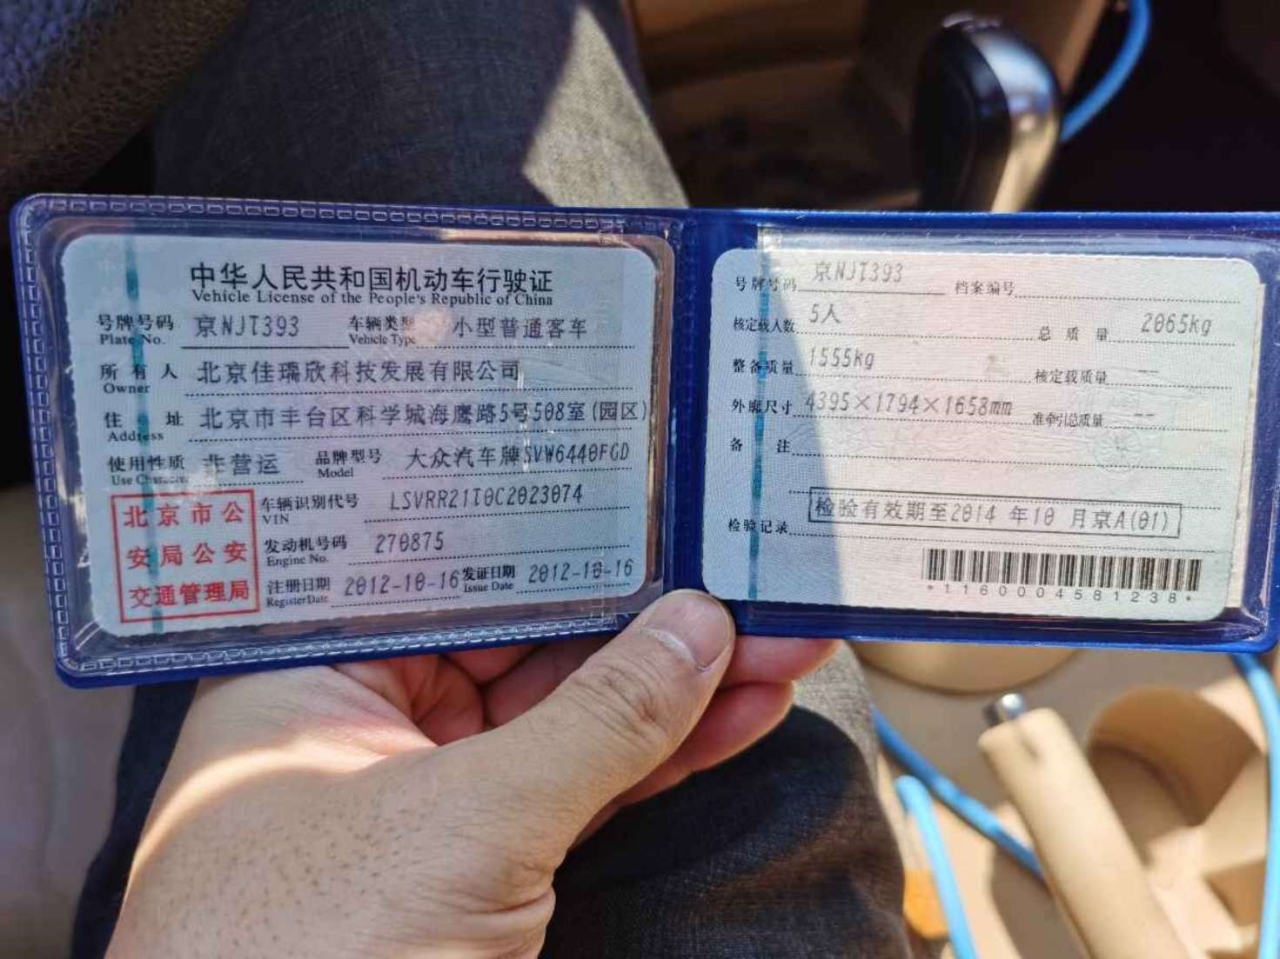 中华人民共和国机动车行驶证
Vehicle License of the People's Republic of China
号牌号码 京NJT393 车辆类型 小型普通客车
Plate No. Vehicle Type
所有人 北京佳瑞欣科技发展有限公司
Owner
住址 北京市丰台区科学城海鹰路5号508室(园区)
Address
使用性质 非营运 品牌型号 大众汽车牌SVW6440FGD
Use Character Model
北京市公
安局公安
交通管理局
车辆识别代号 LSVRR21T0C2023074
VIN
发动机号码 270875
Engine No.
注册日期 2012-10-16 发证日期 2012-10-16
Register Date Issue Date
号牌号码 京NJT393 档案编号
核定载人数 5人 总质量 2065kg
整备质量 1555kg 核定载质量 --
外廓尺寸 4395×1794×1658mm 准牵引总质量 --
备注
检验记录 检验有效期至2014 年10 月京A(01)
*1160004581238*